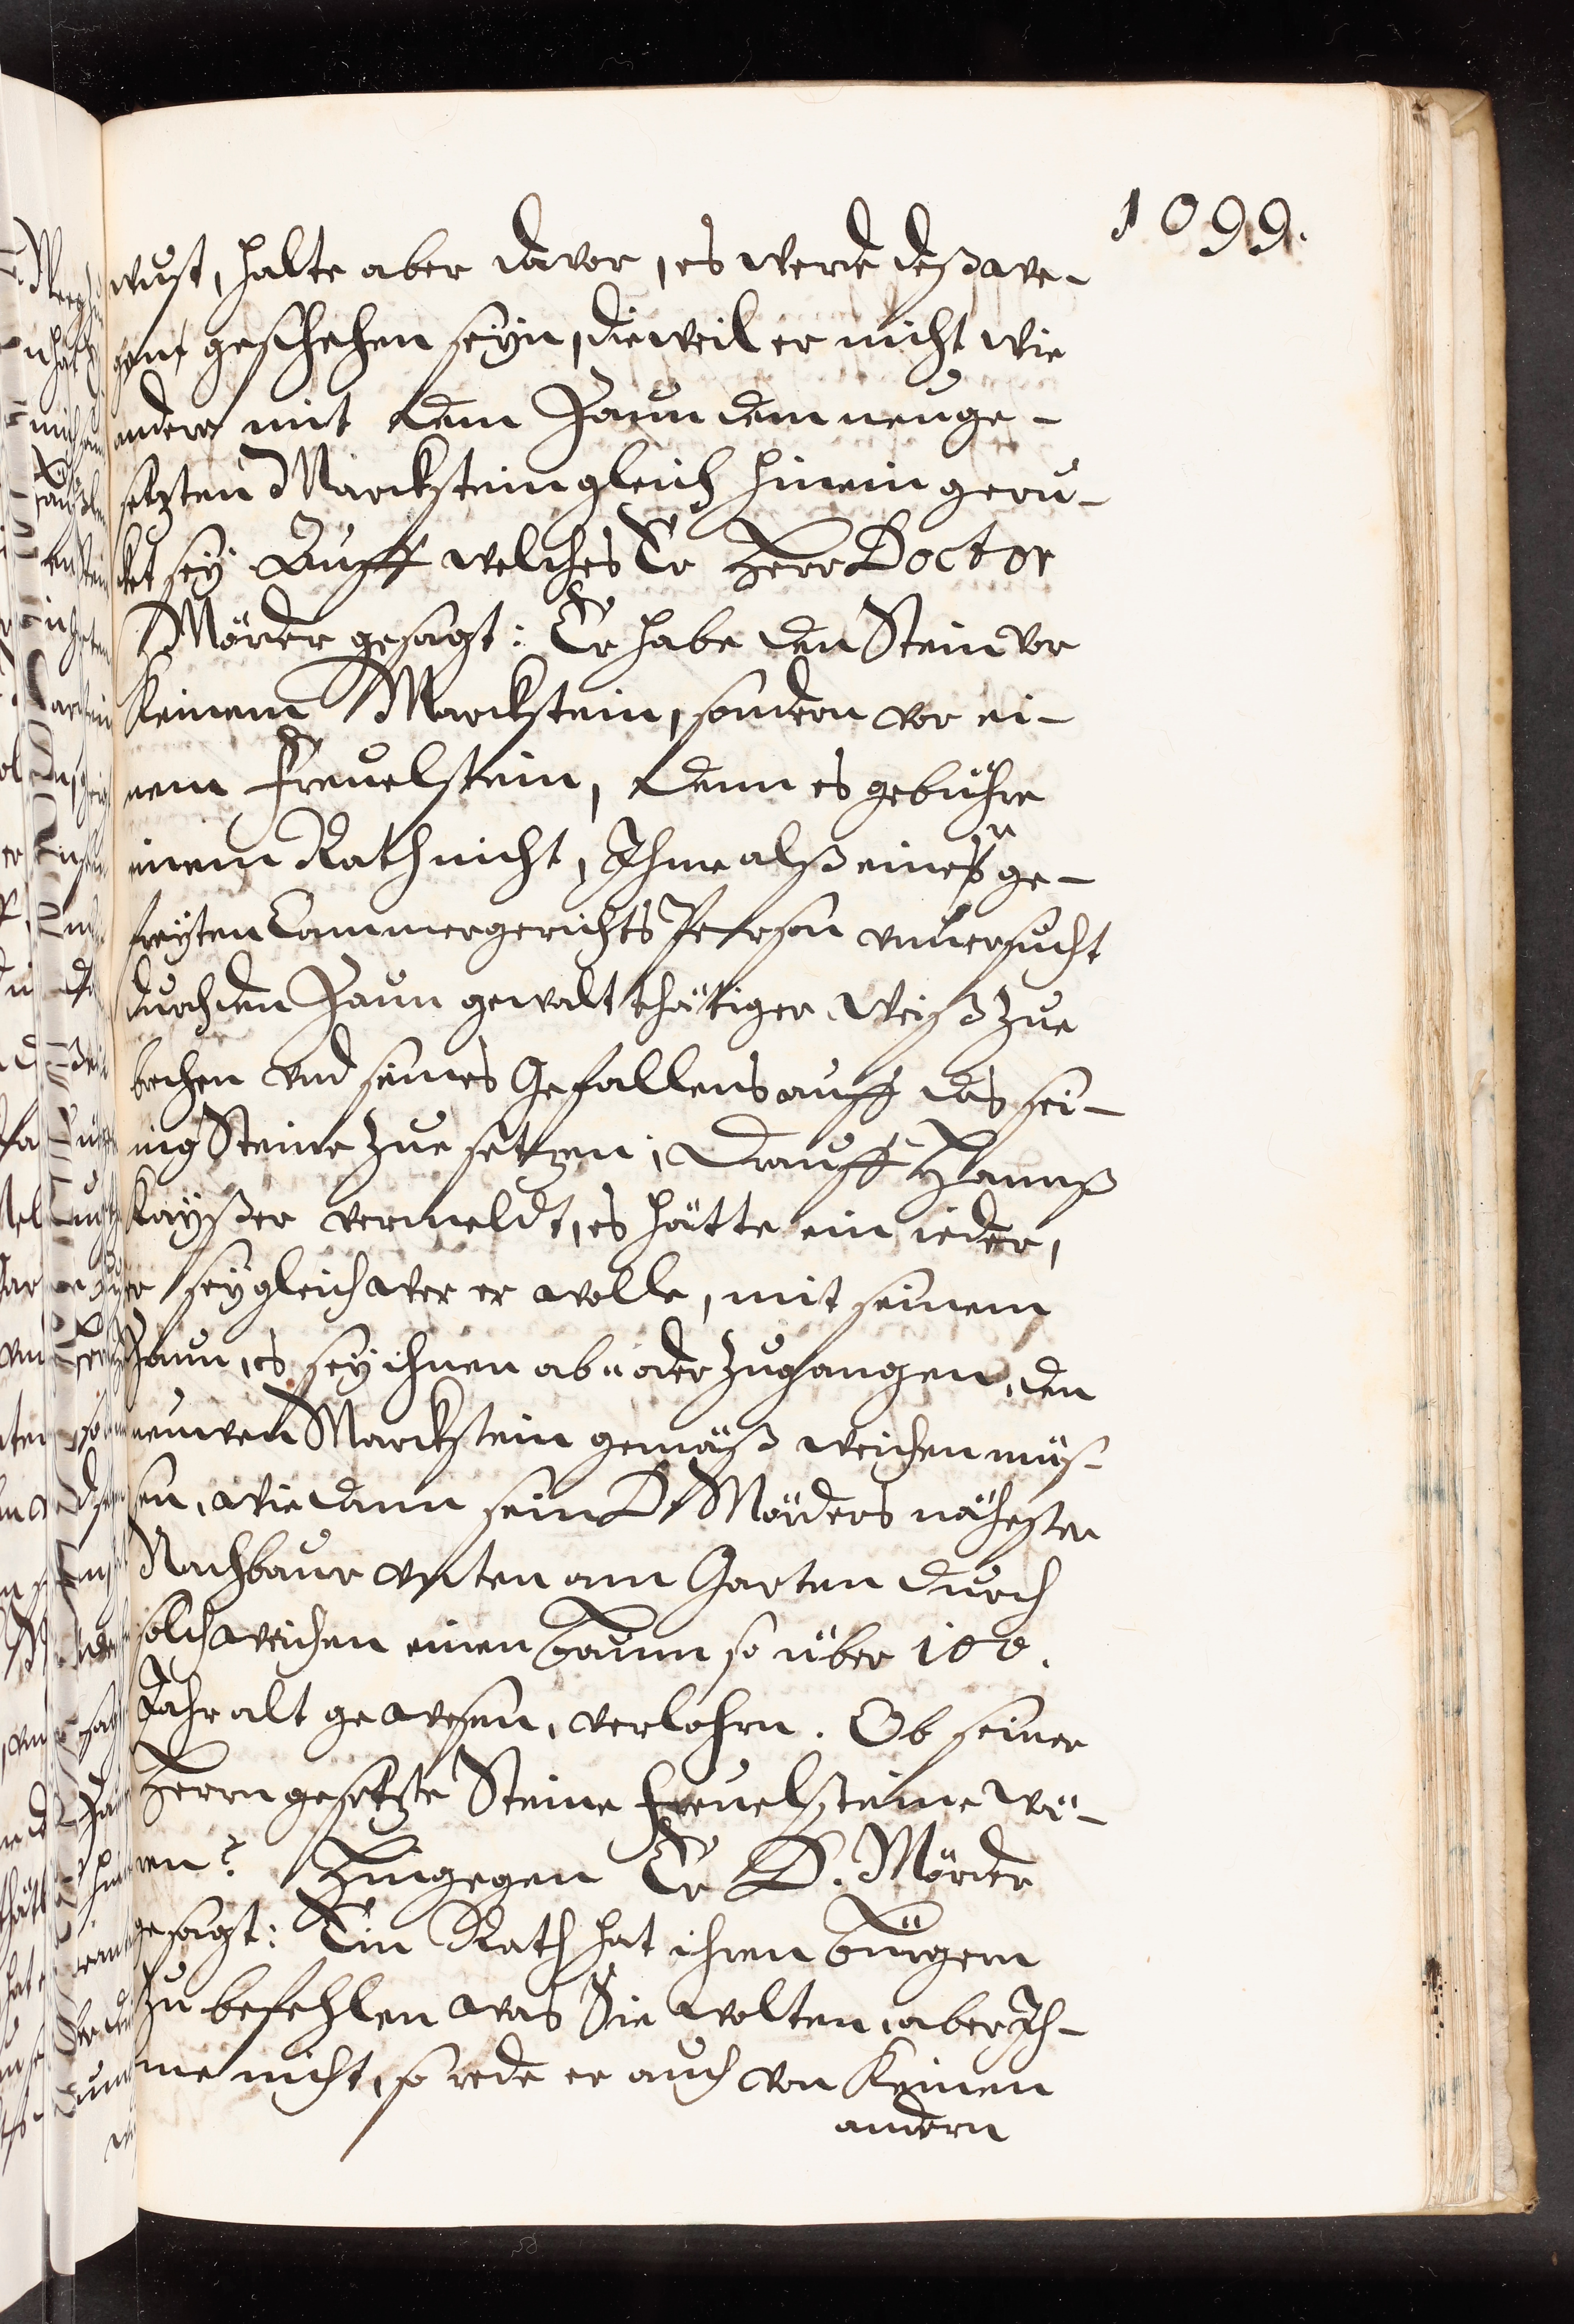 1099.
wust, halte aber davor, es werde deßwe-
gen geschehen seyn, dieweil er nicht wie
andere mit dem Zaun dem neuge-
setzten Marckstein gleich hinein geru-
cket sey Auff welches Er Herr Doctor
Mörder gesagt: Er habe den Stein vor
keinem Marckstein, sondern vor ei-
nem Freuelstein, denn es gebühre
einem Rath nicht, Ihme alß einer ge-
freyten Cammergerichts Person vnuersucht
durch den Zaun gewaltthätiger Weiß zue
brechen vnd seines Gefallens auff das sei-
nig Steine zue setzen; Drauff Hannß
Kayßer vermeldt, es hätte ein ieder,
er sey gleich wer er wolle, mit seinem
Zaun, es sey ihnen ab- oder zugangen, den
neuwen Marckstein gemäß weichen müs-
sen, wie dann sein D. Mörders nähester
Nachbaur vnten am Garten durch
solch weichen einen baum so über 100.
Jahr alt gewesen, verlohrn. Ob seiner
Herrn gesetzte Steine freuelsteine wä-
ren? Hingegen Er D. Mörder
gesagt: Ein Rath hat ihren bürgern
zu befehlen was Sie wolten, aber Ih-
me nicht, so rede er auch von keinen
andern